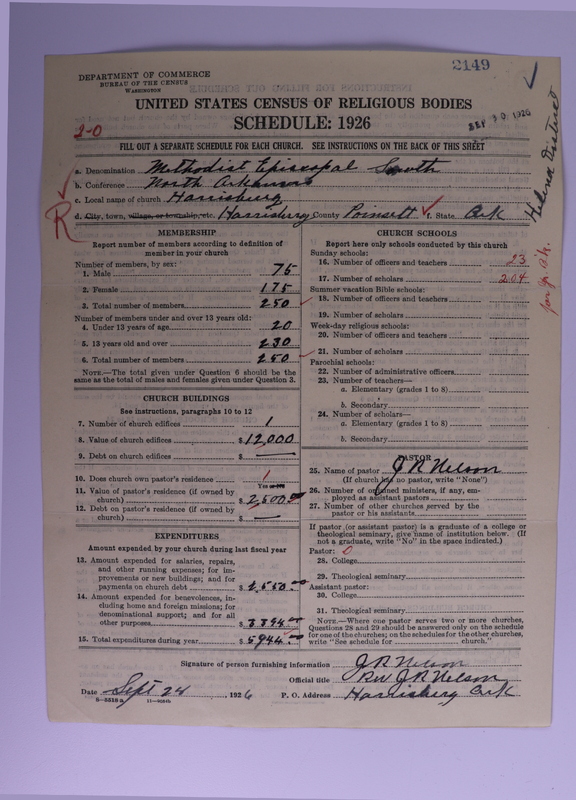 2149
DEPARTMENT OF COMMERCE
BUREAU OF THE CENSUS
WASHINGTON
UNITED STATES CENSUS OF RELIGIOUS BODIES
SCHEDULE: 1926
SEP 30 1926
2-0
FILL OUT A SEPARATE SCHEDULE FOR EACH CHURCH. SEE INSTRUCTIONS ON THE BACK OF THIS SHEET
Helena District
a. Denomination Methodist Episcopal South
b. Conference North Arkansas
c. Local name of church Harrisburg
R
d. City, town, village, or township, etc. Harrisburg County Poinsett f. State Ark
MEMBERSHIP
Report number of members according to definition of
member in your church
Number of members, by sex:
1. Male 75
2. Female 175
3. Total number of members 250
Number of members under and over 13 years old:
4. Under 13 years of age 20
5. 13 years old and over 230
6. Total number of members 250
NOTE.—The total given under Question 6 should be the
same as the total of males and females given under Question 3.
CHURCH BUILDINGS
See instructions, paragraphs 10 to 12
7. Number of church edifices 1
8. Value of church edifices $12,000
9. Debt on church edifices $ —
10. Does church own pastor's residence 1
Yes or No
11. Value of pastor's residence (if owned by
church) $2,500.00
12. Debt on pastor's residence (if owned by
church) $ —
EXPENDITURES
Amount expended by your church during last fiscal year
13. Amount expended for salaries, repairs,
and other running expenses; for im-
provements or new buildings; and for
payments on church debt $2,550.00
14. Amount expended for benevolences, in-
cluding home and foreign missions; for
denominational support; and for all
other purposes $3394.00
15. Total expenditures during year $5944.00
CHURCH SCHOOLS
Report here only schools conducted by this church
Sunday schools:
16. Number of officers and teachers 23
17. Number of scholars 204
Summer vacation Bible schools:
18. Number of officers and teachers
19. Number of scholars
Week-day religious schools:
20. Number of officers and teachers
21. Number of scholars
Parochial schools:
22. Number of administrative officers
23. Number of teachers—
a. Elementary (grades 1 to 8)
b. Secondary
24. Number of scholars—
a. Elementary (grades 1 to 8)
b. Secondary
PASTOR
25. Name of pastor J R Nelson
(If church has no pastor, write "None")
26. Number of ordained ministers, if any, em-
ployed as assistant pastors
27. Number of other churches served by the
pastor or his assistants
If pastor (or assistant pastor) is a graduate of a college or
theological seminary, give name of institution below. (If
not a graduate, write "No" in the space indicated.)
Pastor: 0
28. College
29. Theological seminary
Assistant pastor:
30. College
31. Theological seminary
NOTE.—Where one pastor serves two or more churches,
Questions 28 and 29 should be answered only on the schedule
for one of the churches; on the schedules for the other churches,
write "See schedule for church."
Signature of person furnishing information J R Nelson
Official title Rev J R Nelson
Date Sept 24, 1926 P. O. Address Harrisburg Ark
8-5558a